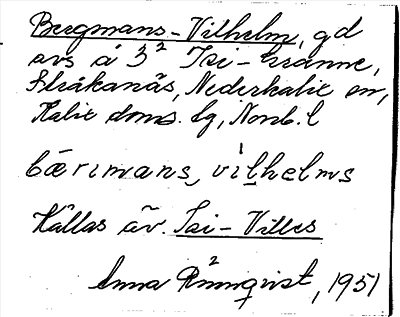 Bergmans-Vilhelm, gd
avs å 3² Isi-Granne,
Stråkanäs, Nederkalix sn,
Kalix doms. lg, Nonb. l
bærımans, vilhelms
Kallas äv. Isi-Villes
Anna Rönnqvist, 1951